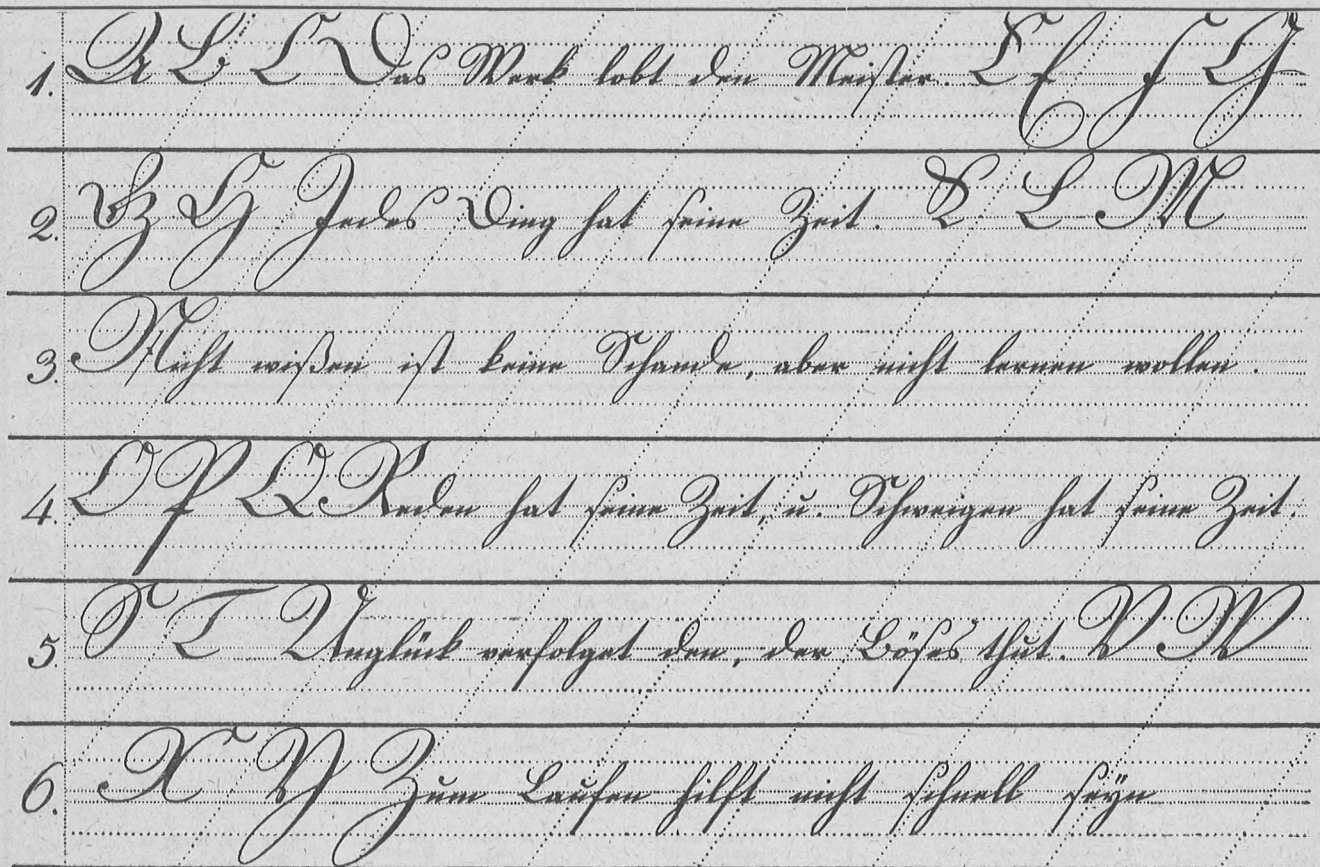 1. A B C Das Werk lobt den Meister. E f F G
2. Sz H Jedes Ding hat seine Zeit. K L M
3. Nicht wißen ist keine Schande, aber nicht lernen wollen.
4. O P Q Reden hat seine Zeit, u. Schweigen hat seine Zeit.
5. S T Unglück verfolget den, der Böses thut. V W
6. X Y Zum Laufen hilft nicht schnell seÿn